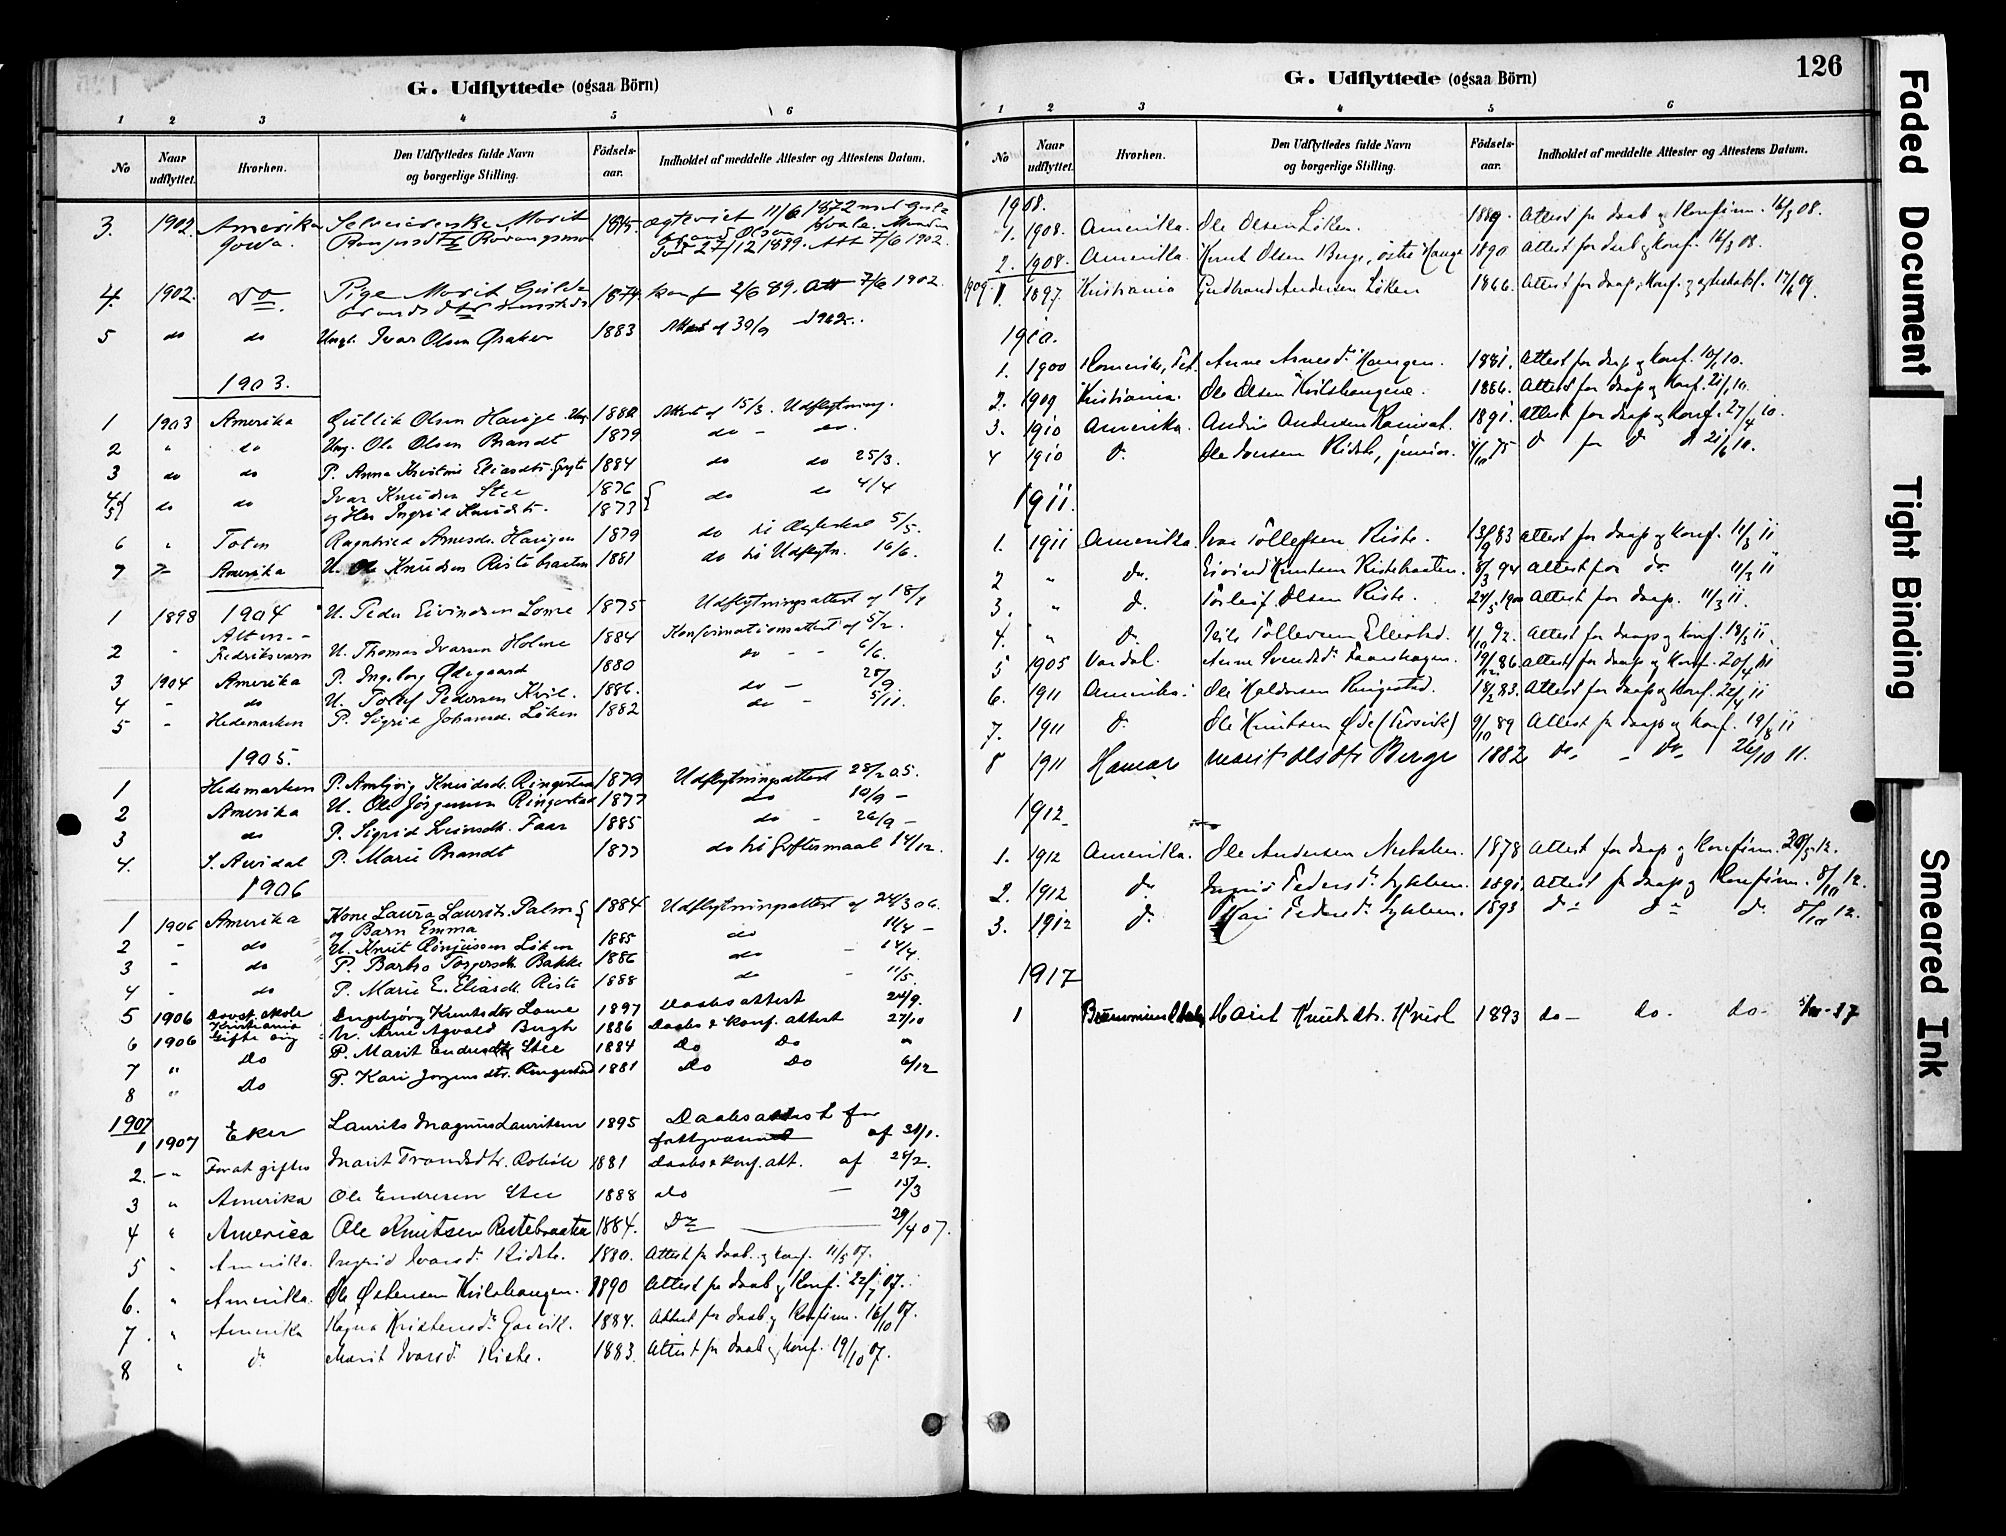 G. Udflyttede (ogsaa Börn)
1 2 3 4 5 6
No Naar udflyttet. Hvorhen. Den Udflyttedes fulde Navn og borgerlige Stilling. Födsels-aar. Indholdet af meddelte Attester og Attestens Datum.
3. 1902. Amerika Selveierenke Marit 1845. Ægteviet 11/6 1872 med Guld-
Iowa. brand Olsen Kvale. Manden
död 27/12 1899. Att. 7/6 1902.
4. 1902. Do. Pige Marit Guld- 1874 konf 2/6 89. Att 7/6 1902.
brandsdtr
5 do do Ungk. Ivar Olsen 1883 Attest af 30/9 1902.
1903.
1 1903 Amerika Gullik Olsen Hauge Ung. 1880 Attest af 15/3. Udflytning.
2 " do Ung. Ole Olsen Brandt 1879 do - do.
3 do do P. Anna Kristine Eliasdtr. 1884 do do 25/3.
4 do do Ivar Knudsen Stee 1876 do do 4/4
5 og Hu Ingrid Knudsdtr. 1873
6 " Toten Ragnhild Arnesdr. Haugen 1879 do til Ægteskab 5/5.
7 Amerika U. Ole Knudsen Ristebraaten 1881 do til Udflytn. 16/6.
1904
1 1898 Alten - U. Peder Eivindsen Lome 1875 Udflytningsattest af 18/1
2 - Fredriksværn U. Thomas Ivarsen Holme 1884 Konfirmationsattest af 5/2.
3 1904 Amerika P. Ingeborg Ødegaard 1880 do - - 6/6.
4 - do U. Tollef Pedersen Kvil. 1886. do - 28/9
5 - Hedemarken P. Sigrid Johansd. Löken 1882 do - 5/11.
1905.
1 Hedemarken P. Ambjörg Knudsdr. Ringestad 1879 Udflytningsattest 28/2 05.
2 Amerika U. Ole Jörgensen Ringestad 1877 do 10/9 -
3 do P. Sigrid Sveinsdtr. Faar 1885 do - 26/9 -
4. S. Aurdal P. Marie Brandt 1877 do til Giftermaal 14/12.
1906
1 1906 Amerika Kone Laura Lauritz. Palm 1884 Udflytningsattest af 24/3 06.
og Barn Emma
2 - do U. Knut Rönjussen Löken 1885 do 11/4 -
3 - do P. Barbro Torgersdtr. Bakke 1886 do - 14/4.
4 - do P. Marie E. Eliasdtr Riste 1888 do - 11/5.
5 1906 Ingebjörg Knutsdtr Lome 1897 Daabsattest 24/9.
6 1906 Kristiania U. Arne Agvald Bergh 1886 Daabs & konf. attest 27/10
7 " Gifte sig Do P. Marit Endresdtr Stee 1884 Do Do "
8 " Do P. Kari Jörgensdtr. Ringestad 1881 Do Do 6/12
1907
1 1907 Eker Laurits Magnus Lauritsen 1895 Daabsattest for
af 31/1.
2. - " For at giftes Marit Trondsdtr. 1881 Daabs & konf. att. af 28/2.
3 " Amerika Ole Endresen Stee 1888 do - 15/3
4 " America Ole Knutsen Ristebraaten 1884. Do 29/4 07.
5 " Amerika. Ingrid Ivarsd. Ridste. 1880. Attest fr daab. og konf. 11/5 07.
6. " Amerika. Ole Østensen Kvilshaugen. 1890 Attest for daab og konf. 22/7 07.
7. " Amerika Ragna Kristensd. Garvik. 1884. Attest for daab og konfirm. 16/10 07.
8 " do Marit Ivarsd. Riste. 1883. Attest for daab og konf. 19/10 07.
G. Udflyttede (ogsaa Börn) 126
1 2 3 4 5 6
No Naar udflyttet. Hvorhen. Den Udflyttedes fulde Navn og borgerlige Stilling. Födsels-aar. Indholdet af meddelte Attester og Attestens Datum.
1908.
1. 1908. Amerika. Ole Olsen Löken. 1889. Attest for daab og konfirm. 16/3 08.
2. 1908. Amerika. Knut Olsen Berge, östre Hauge 1890 Attest for daab og konf. 16/3 08.
1909. 1. 1897. Kristiania Gudbrand Andersen Löken 1866. Attest for daap, konf. og egteskabsl. 17/6 09.
1910.
1. 1900 Romerike, Fet. Anne Arnesd. Haugen. 1881. Attest for daap og konf. 10/1 10.
2. 1909 Kristiania. Ole Olsen Kvilshaugene. 1886. Attest for daap og konf. 21/1 10.
3. 1910 Amerika. Andris Andersen 1891. Attest for daap og konf. 27/4 10.
4 1910 do. Ole Ivarsen Ridste, junior. 4/10 75 do for do d 21/6 10.
1911.
1. 1911 Amerika. Ivar Tollefsen Riste. 13/9 83 Attest for daap og konf. 11/3 11
2 " do. Eivind Knutsen Ristebraaten. 8/3 94 Attest for do. 11/3 11
3. " do. Torleif Olsen Riste. 27/5 1900 Attest for daap. 11/3 11.
4. " do. Nils Tollevsen Ellestad. 1/10 92. Attest for daap og konf. 18/3 11.
5 1905 Vardal. Anne Svendsd. Faarshaugen. 19/12 86. Attest for daap og konf. 20/4 11
6. 1911 Amerika. Ole Haldorsen Ringestad. 18/2 83. Attest for daap og konf. 22/4 11
7. 1911 do. Ole Knutsen Øde (Frosvik) 9/10 89 Attest for daap og konf. 19/8 11
8 1911 Hamar Marit Olsdtr Berge 1882 do. " do. 26/10 11.
1912.
1. 1912 Amerika. Ole Andersen 1878 Attest for daap og konfirm. 20/3 12.
2. 1912 do Ingrid Pedersd. 1891. Attest for daap og konfirm. 8/10 12.
3. 1912 do. Kari Pedersd. 1893 do do do 8/10 12.
1917
1 Brummunddalen Marit Knutsdtr. Kvil 1893 do - do - do -
Faded Document
Tight Binding
Smeared Ink